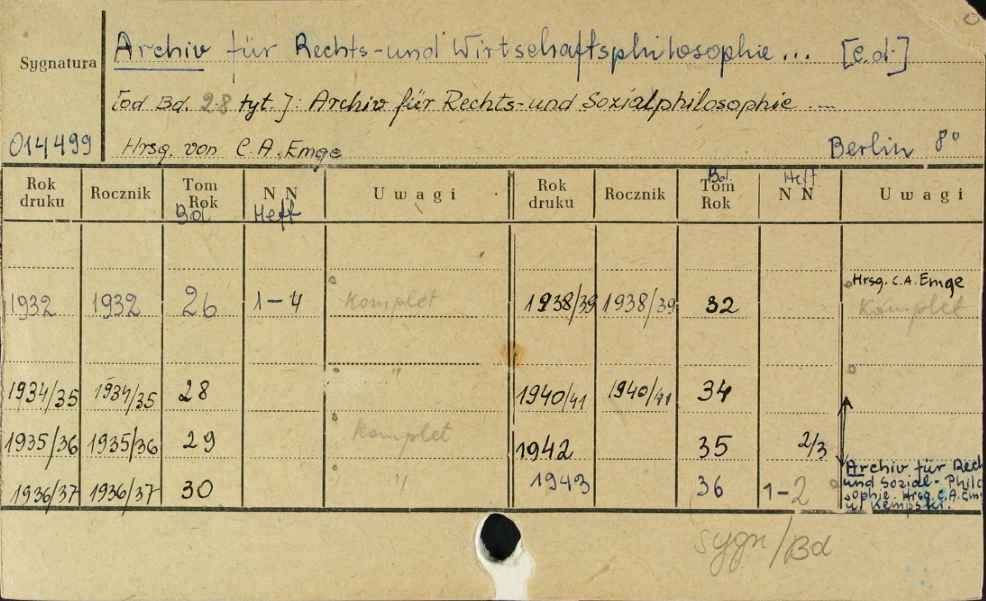 Archiv für Rechts-und Wirtschaftsphilosophie... [c.d.]
Sygnatura
[od Bd. 28 tyt.]: Archiv für Rechts-und Sozialphilosophie ...
014499 Hrsg. von C.A. Emge Berlin 8°
Rok druku Rocznik Tom Rok Bd. NN Heft Uwagi Rok druku Rocznik Bd. Tom Rok Heft NN Uwagi
Hrsg. C.A. Emge
1932 1932 26 1-4 Komplet 1938/39 1938/39 32 Komplet
1934/35 1934/35 28 " 1940/41 1940/41 34
1935/36 1935/36 29 Komplet 1942 35 2/3
1936/37 1936/37 30 " 1943 36 1-2
Archiv für Rech
und Sozial-Philo
sophie. Hrsg. C.A. Em
u. Kempski.
sygn/Bd